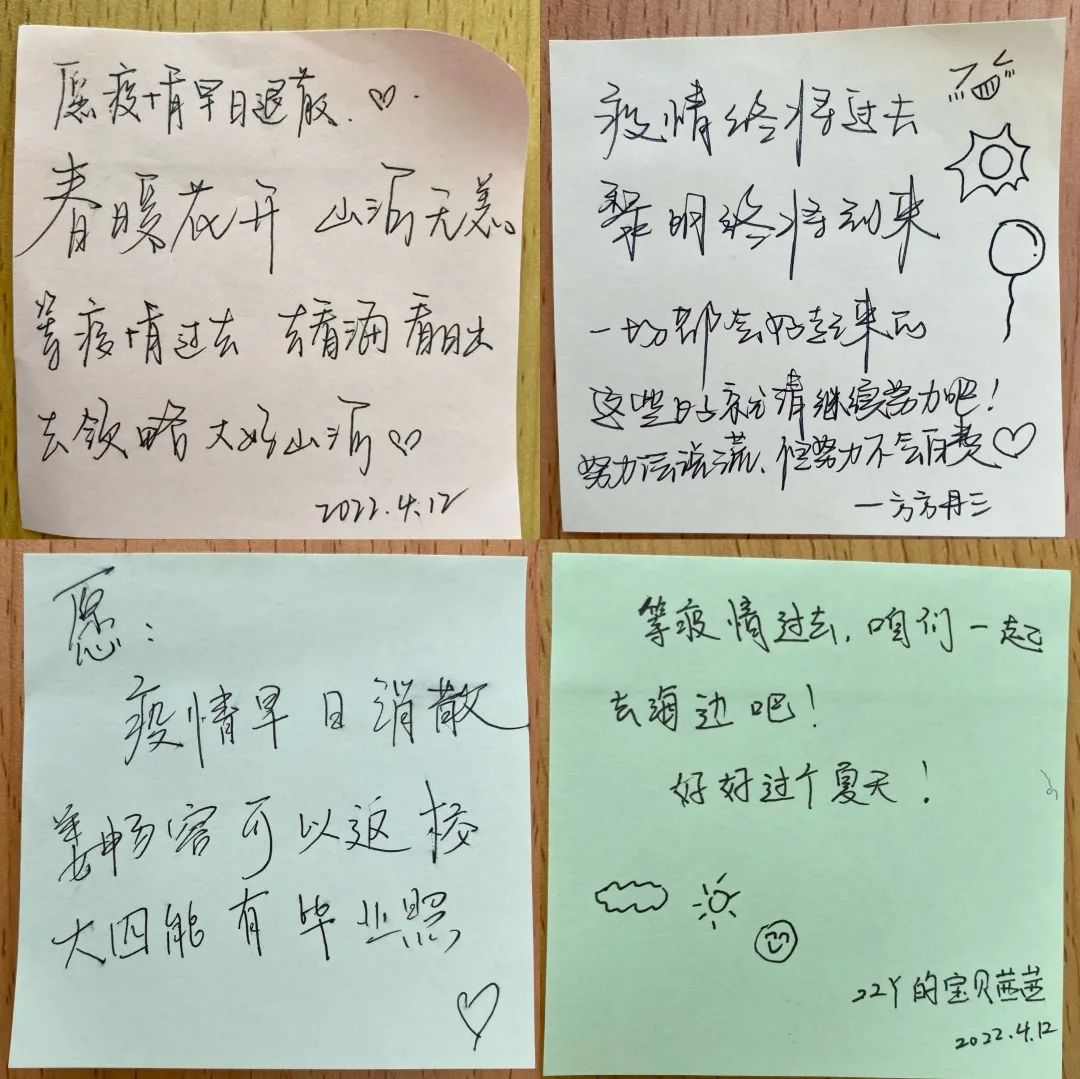 愿疫情早日退散.
春暖花开 山河无恙
等疫情过去 去看海看日出
去领略大好山河
2022.4.12
疫情终将过去
黎明终将到来
一切都会好起来的
这些日子就请继续努力吧!
努力会说谎、但努力不会白费
一方方丹三
愿:
疫情早日消散
姜畅容可以返校
大四能有毕业照
等疫情过去,咱们一起
去海边吧!
好好过个夏天!
22丫的宝贝茜茜
2022.4.12